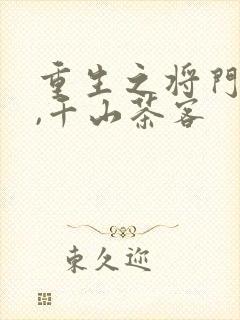 重生之将门
,千山茶客
束久迩